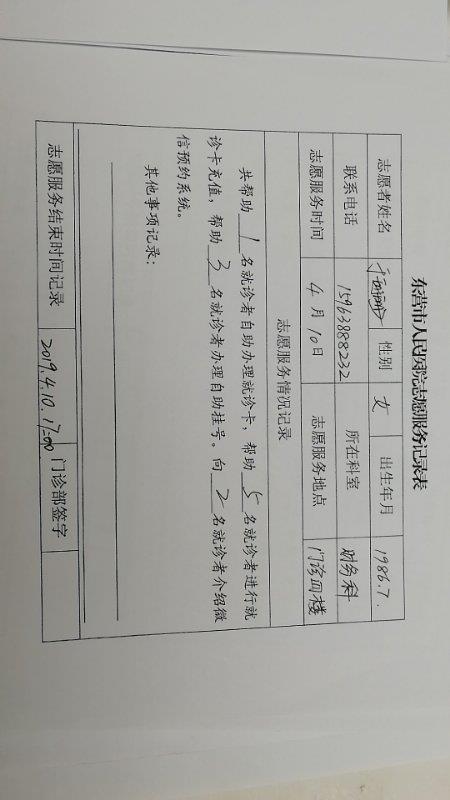 东营市人民医院志愿服务记录表
志愿者姓名 性别 女 出生年月 1986.7.
联系电话 15963888232 所在科室 财务科
志愿服务时间 4月10日 志愿服务地点 门诊四楼
志愿服务情况记录
共帮助 1 名就诊者自助办理就诊卡，帮助 5 名就诊者进行就
诊卡充值，帮助 3 名就诊者办理自助挂号。向 2 名就诊者介绍微
信预约系统。
其他事项记录：
志愿服务结束时间记录 2019.4.10. 17:00 门诊部签字